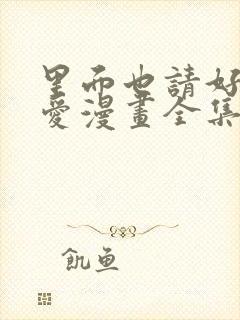 里而也請好
愛漫畫全集
飢魚